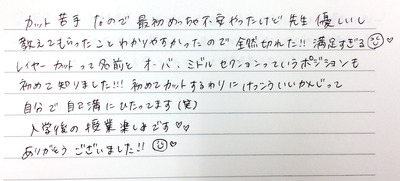 カット苦手なので最初めっちゃ不安やったけど先生優しいし
教えてもらったことわかりやすかったので全然切れた!! 満足すぎる
レイヤーカットって名前とオーバ、ミドルセクションっていうポジションも
初めて知りました!!! 初めてカットするわりにけっこういいかんじって
自分で自己満にひたってます(笑)
入学後の授業楽しみです♡♡
ありがとうございました!!